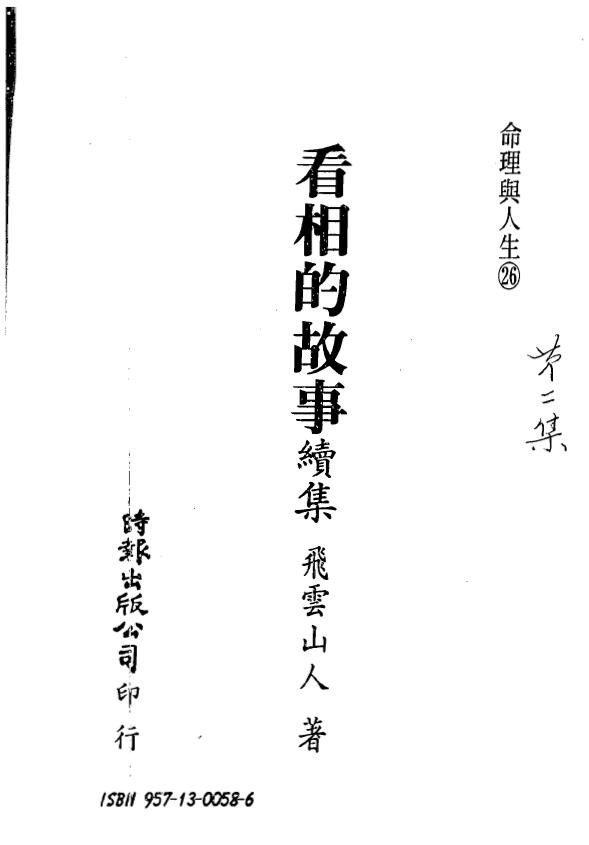 命理與人生㉖
第二集
看相的故事續集 飛雲山人 著
時報出版公司印行
ISBN 957-13-0058-6